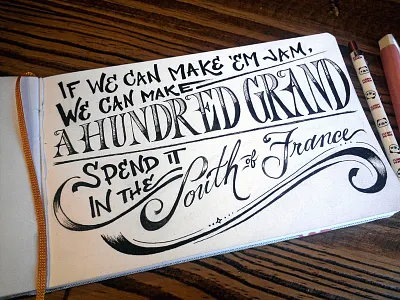 IF WE CAN MAKE 'EM JAM,
WE CAN MAKE
A HUNDRED GRAND
SPEND IT
IN THE South of France